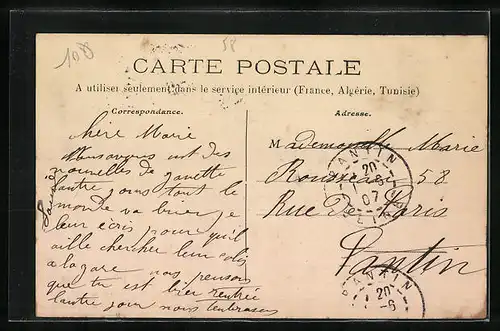 108
58
CARTE POSTALE
A utiliser seulement dans le service intérieur (France, Algérie, Tunisie)
Correspondance.
chère Marie
nous avons ut des
nouvelles de
lautre jours tout le
monde va bien je
leur écris pour qu'il
aille chercher leur colis
a la gare nous pensons
que tu est bien rentrée
lautre jour nous tembrasons
Adresse.
Mademoiselle Marie
58
Rue De Paris
Pantin
PANTIN
20
6
07
SEINE
PANTIN
20
6